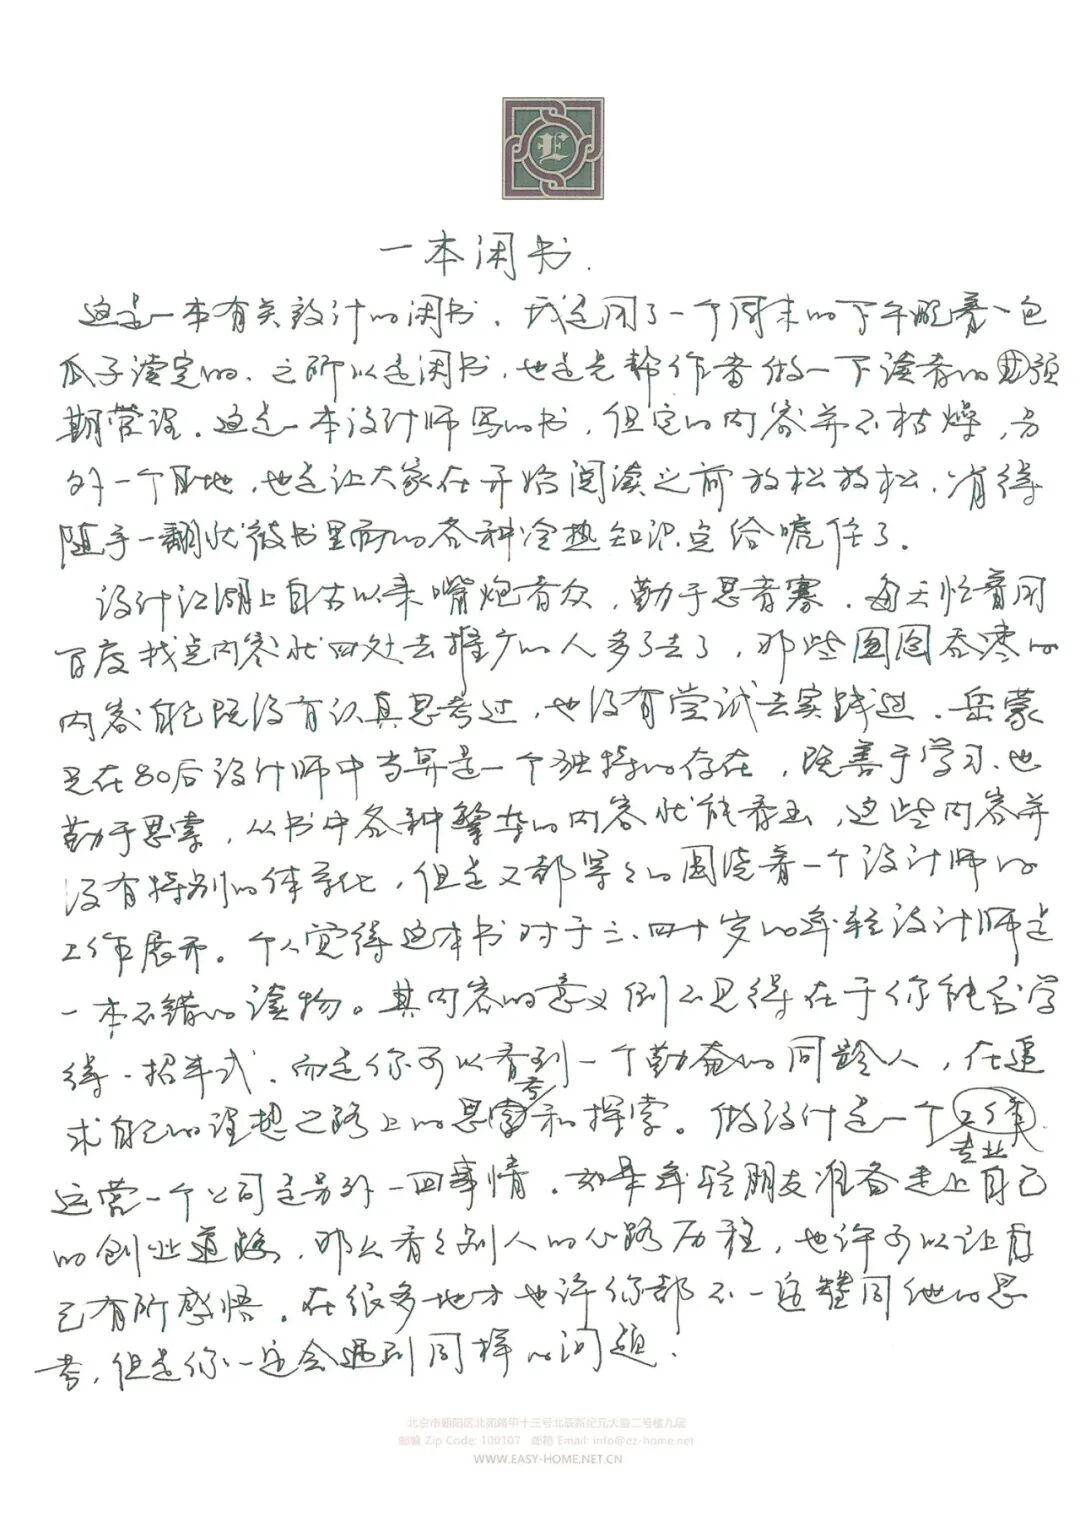 E
一本闲书.
这是一本有关设计的闲书.我是用了一个周末的下午就着一包
瓜子读完的.之所以是闲书,也是先帮作者做一下读者的预
期管理.这是一本设计师写的书,但它的内容并不枯燥,另
外一个目地,也是让大家在开始阅读之前放松放松.省得
随手一翻就被书里面的各种冷热知识点给唬住了.
设计江湖上自古以来嘴炮者众,勤于思考寡.每天忙着用
百度找点内容就四处去推广的人多了去了,那些囫囵吞枣的
内容自己既没有认真思考过,也没有尝试去实践过.岳蒙
是在80后设计师中当算是一个独特的存在,既善于学习、也
勤于思索,从书中各种繁杂的内容就能看出,这些内容并
没有特别的体系化,但是又都紧紧的围绕着一个设计师的
工作展开。个人觉得这本书对于三、四十岁的年轻设计师是
一本不错的读物。其内容的意义倒不见得在于你能否学
得一招半式.而是你可以看到一个勤奋的同龄人,在追
求自己的理想之路上的思考和探索。做设计是一个专业
运营一个公司是另外一回事情.如果年轻朋友准备走上自己
的创业道路,那么看看别人的心路历程,也许可以让自
己有所感悟.在很多地方也许你都不一定赞同他的思
考,但是你一定会遇到同样的问题.
北京市朝阳区北苑路甲十三号北辰新纪元大厦二号楼九层
邮编 Zip Code: 100107 邮箱 Email: info@ez-home.net
WWW.EASY-HOME.NET.CN